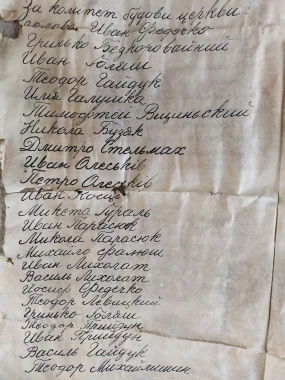 За комитет будови церкви:
Иван Федечко
Гринько Бедкоровайний
Иван ГоГяш
Теодор Гайдук
Илія Галушка
Тимофтей Вициньский
Никола Будяк
Дмитро Стельмах
Иван Олеськів
Петро Олеськів
Иван Косць
Микета Гураль
Иван Парасюк
Микола Парасюк
Михайло
Иван Михогат
Василь Михогат
Йосиф Федечко
Теодор Левицкий
Гринько ГоГяш
Теодор Прийдун
Иван Прийдун
Василь Гайдук
Теодор Михайлишин